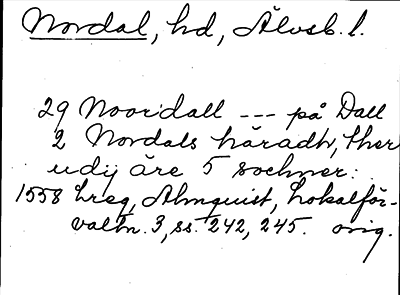 Nordal, hd, Älvsb. l.
29 Noordall --- på Dall
2 Nordals häradh, ther
udij äre 5 sochner:
1558 hreg, Almquist, Lokalför-
valtn. 3, ss. 242, 245. orig.